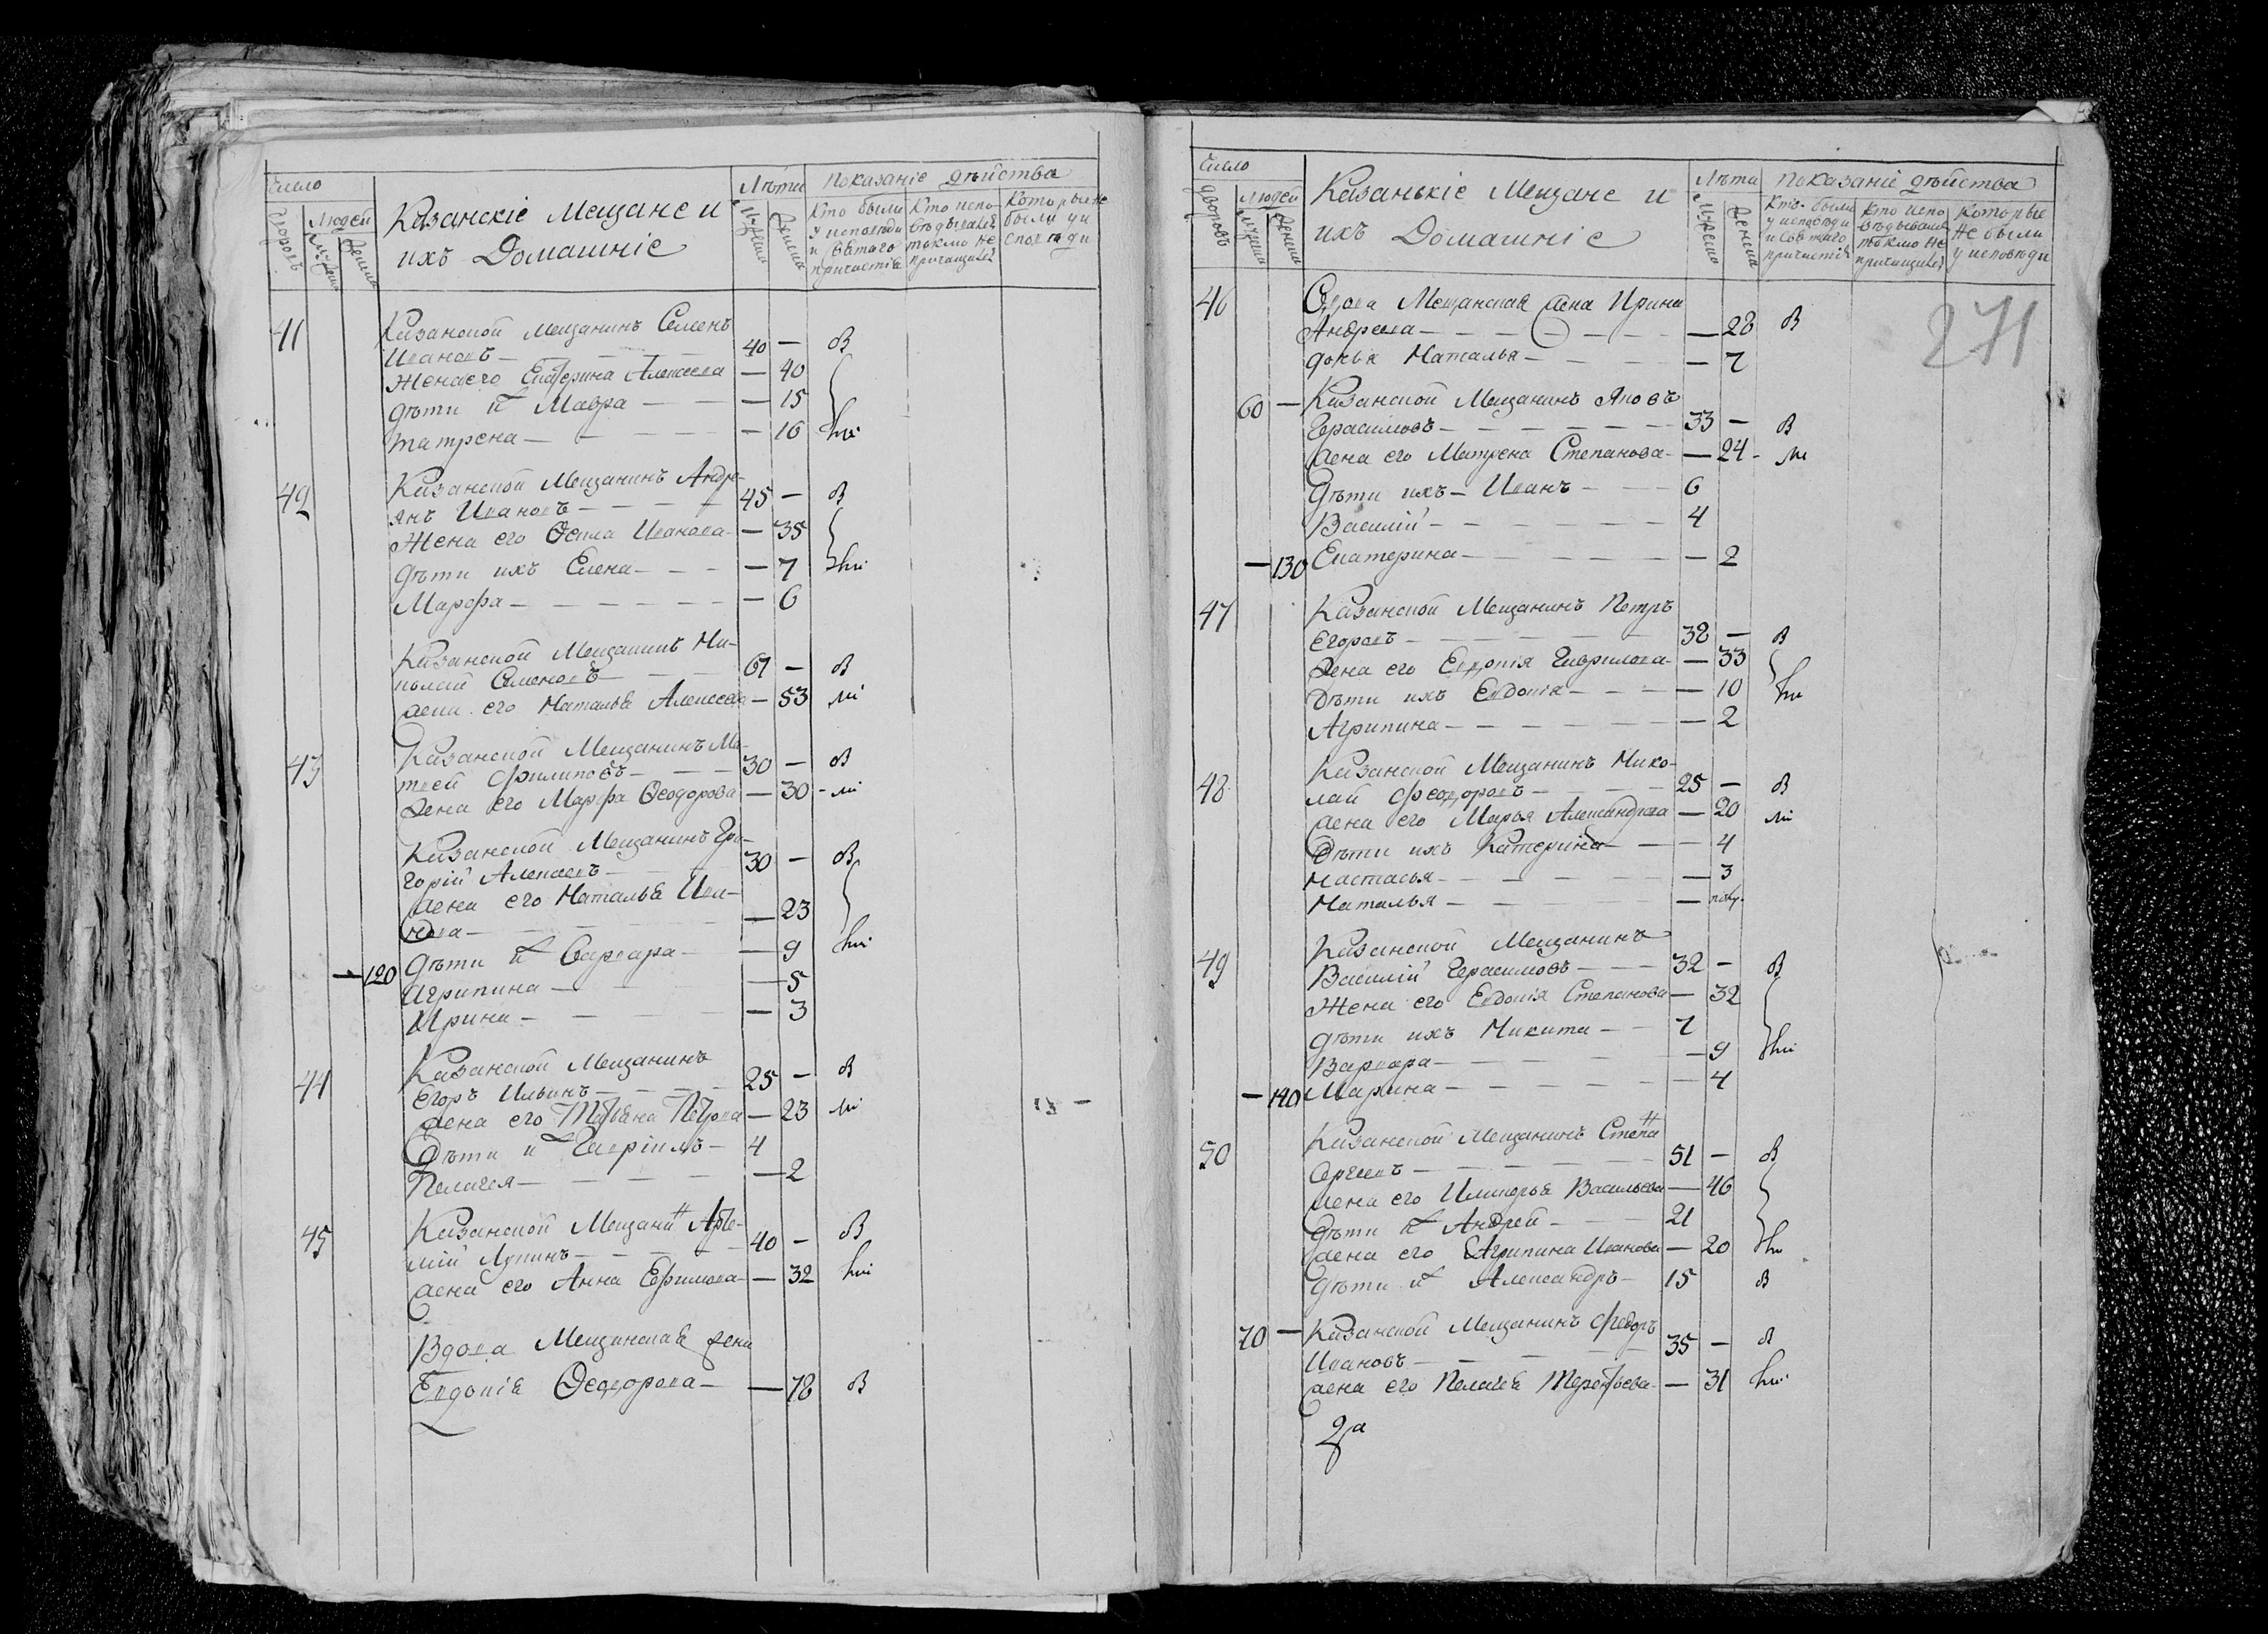 Число
Лѣта
Показанiе дѣйства
дворовъ
Людей
мужеска
женска
Казанскiе Мещане и
ихъ Домашнiе
мужеска
женска
Кто были у исповѣди и святаго причастiя
Кто исповѣдывался токмо не причащался
Которые не были у исповѣди
41 Казанской Мещанинъ Семенъ
Ивановъ — 40 — В
Жена его Екатерина Алексеева — 40
дѣти их Мавра — 15
Матрена — 16
42 Казанской Мещанинъ Андре-
янъ Ивановъ — 45 — В
Жена его Ѳекла Иванова — 35
дѣти ихъ Елена — 7
Марфа — 6
Казанской Мещанинъ Ни-
колай Семеновъ — 67 — В
жена его Наталья Алексеева — 53
43 Казанской Мещанинъ Ма-
твей Филиповъ — 30 — В
жена его Марфа Ѳеодорова — 30
Казанской Мещанинъ Гри-
горiй Алексеевъ — 30 — В
жена его Наталья Ива-
нова — 23
дѣти их Варвара — 9
— 120 Агрипина — 5
Ирина — 3
44 Казанской Мещанинъ
Егоръ Ильинъ — 25 — В
жена его Татьяна Петрова — 23
Дѣти их Гаврiилъ — 4
Пелагея — 2
45 Казанской Мещанинъ Арте-
мiй Лупинъ — 40 — В
жена его Анна Ефимова — 32
Вдова Мещанская жена
Евдокiя Ѳеодорова — 78 В
Число
Лѣта
Показанiе дѣйства
дворовъ
Людей
мужеска
женска
Казанькiе Мещане и
ихъ Домашнiе
мужеска
женска
Кто были у исповѣди и святаго причастiя
Кто исповѣдывался токмо не причащался
Которые не были у исповѣди
271
46 Вдова Мещанская жена Ирина
Андреева — 28 В
дочья Наталья — 7
60 — Казанской Мещанинъ Яковъ
Герасимовъ — 33 — В
жена его Матрена Степанова — 24
Дѣти ихъ — Иванъ — 6
Василiй — 4
— 130 Екатерина — 2
47 Казанской Мещанинъ Петръ
Егоровъ — 32 — В
жена его Евдокiя Гаврилова — 33
Дѣти ихъ Евдокiя — 10
Агрипина — 2
48 Казанской Мещанинъ Нико-
лай Феодоровъ — 25 — В
жена его Марья Александрова — 20
Дѣти ихъ Катерина — 4
Настасья — 3
Наталья — полу.
49 Казанской Мещанинъ
Василiй Герасимовъ — 32 — В
Жена его Евдокiя Степанова — 32
дѣти ихъ Никита — 7
Варвара — 9
— 140 Марина — 4
50 Казанской Мещанинъ Степа
Сергеевъ — 51 — В
жена его Гликерья Васильева — 46
дѣти их Андрей — 21
жена его Агрипина Иванова — 20
дѣти их Александръ — 15 В
70 — Казанской Мещанинъ Федоръ
Ивановъ — 35 — В
жена его Пелагея Терентьева — 31